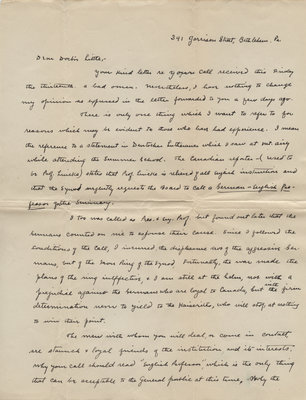 391 Garrison Street, Bethlehem, Pa.
Dear Doctor Little,-
Your kind letter re yours call received this Friday
the thirteenth - a bad omen. Nevertheless, I have nothing to change
my opinion as expressed in the letter forwarded to you a few days ago.
There is only one thing which I want to refer to for
reasons which may be evident to those who have had experience. I mean
the reference to a statement in Deutscher Lutheraner which I saw at Mt. Airy
while attending the Summer School. The Canadian reporter (used to
be Prof. ) states that Prof. is relieved of all English instruction and
that the Synod urgently requests the Board to call a German-English Pro-
fessor for the Seminary.
I too was called as Ger. & Eng. Prof. but found out later that the
Germans counted on me to espouse their cause. Since I followed the
conditions of the Call, I incurred the displeasure also of the aggressive Ger-
mans, but of the Iron Ring of the Synod. Fortunately, the war made the
plans of the ring ineffective, & I am still at the helm, not with a
prejudice against the Germans who are loyal to Canada, but with the firm
determination never to yield to the Kaiserites, who will stop at nothing
to win their point.
The men with whom you will deal or come in contact
are staunch & loyal friends of the institution and its interests.
Why your call should read "English Professor" which is the only thing
that can be acceptable to the General public at this time, Only the